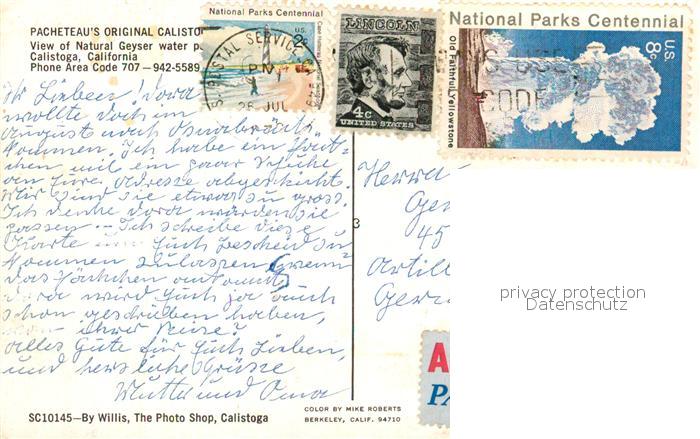 PACHETEAU'S ORIGINAL CALISTO
View of Natural Geyser water p
Calistoga, California
Phone Area Code 707 — 942-5589
National Parks Centennial
2c
U.S.
POSTAL SERVICE
PM
26 JUL
LINCOLN
4¢
UNITED STATES
National Parks Centennial
Old Faithful, Yellowstone
U.S. 8c
USE
CODE
Ihr Lieben! Dora
wollte doch im
August nach Osnabrück
kommen. Ich habe ein
mit ein paar Schuhe
an Eure Adresse abgeschickt.
Mir sind sie etwas zu gross.
Ich denke Dora werden sie
passen. Ich schreibe diese
Karte Euch Bescheid zu
kommen zulassen wenn
das Päckchen ankommt
Dora wird Euch ja auch
schon geschrieben haben,
von ihrer Reise?
Alles Gute für Euch Lieben,
und herzliche Grüsse
Mutti und Oma
3
Herrn
45
SC10145—By Willis, The Photo Shop, Calistoga
COLOR BY MIKE ROBERTS
BERKELEY, CALIF. 94710
A
PA
privacy protection
Datenschutz